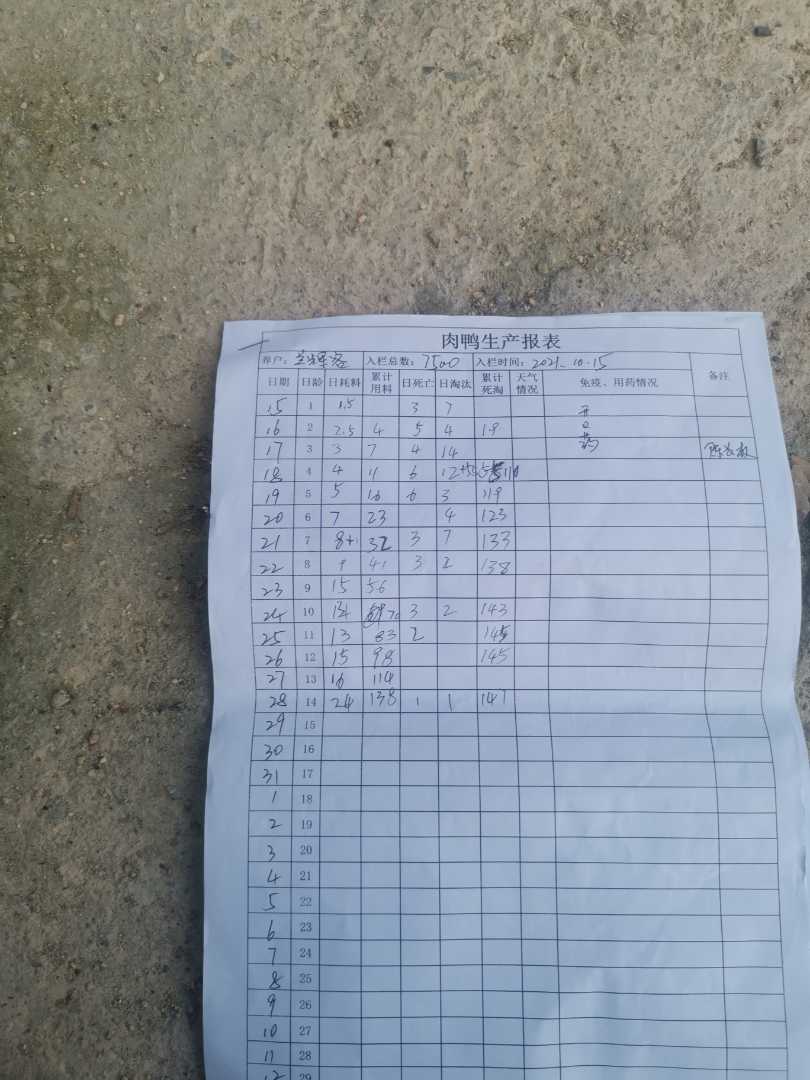 肉鸭生产报表
养户： 入栏总数：7500 入栏时间：2021.10.15
日期 日龄 日耗料 累计用料 日死亡 日淘汰 累计死淘 天气情况 免疫、用药情况 备注
15 1 1.5 3 7 开
16 2 2.5 4 5 4 19 口
17 3 3 7 4 14 药
18 4 4 11 6 110
19 5 5 16 6 3 119
20 6 7 23 4 123
21 7 8+1 32 3 7 133
22 8 9 41 3 2 138
23 9 15 56
24 10 70 3 2 143
25 11 13 83 2 145
26 12 15 98 145
27 13 16 114
28 14 24 138 1 1 147
29 15
30 16
31 17
1 18
2 19
3 20
4 21
5 22
6 23
7 24
8 25
9 26
10 27
11 28
12 29